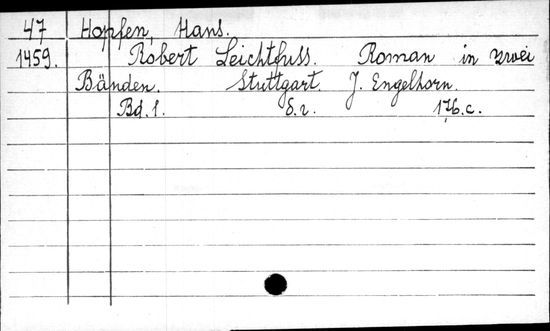 47 Hopfen, Hans.
1459. Robert Leichtfuss. Roman in zwei
Bänden. Stuttgart. J. Engelhorn.
Bd. 1. S. r. 176. c.